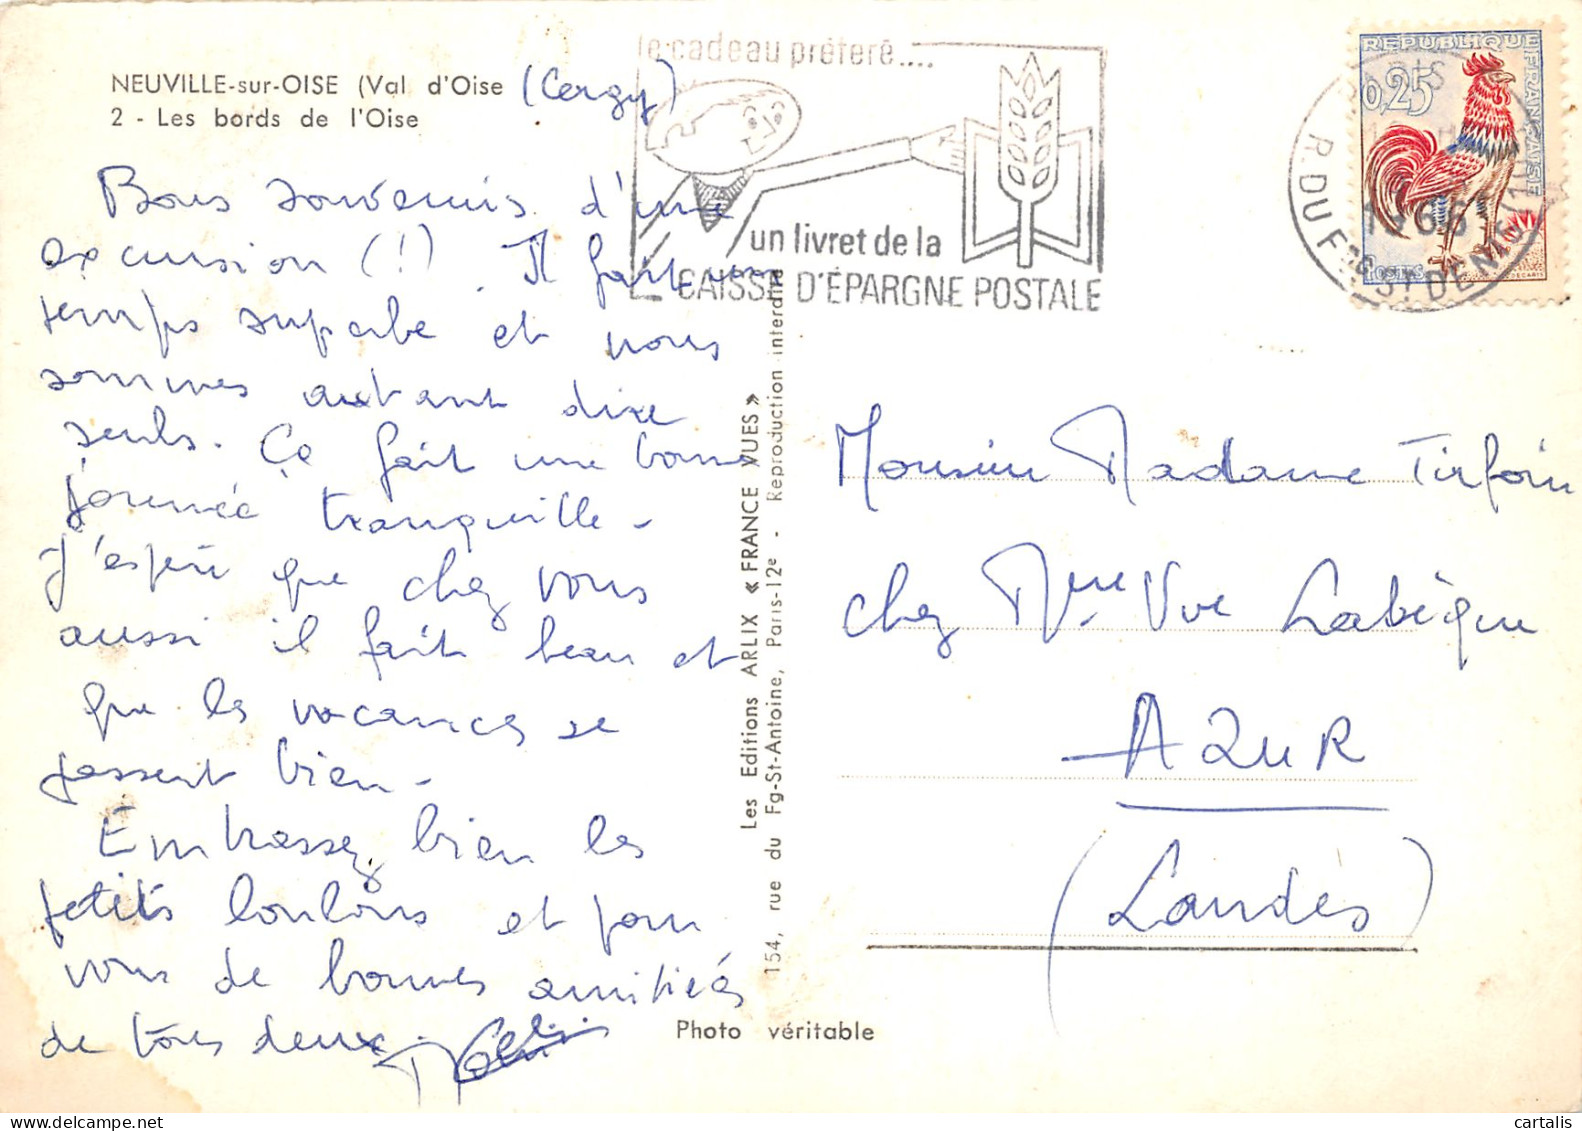 NEUVILLE-sur-OISE (Val d'Oise (Cergy)
2 - Les bords de l'Oise
Bons souvenirs d'une
excursion (!) Il fait un
temps superbe et nous
sommes autant dire
seuls. Ça fait une bonne
journée tranquille -
J'espère que chez vous
aussi il fait beau et
que les vacances se
passent bien -
Embrassez bien les
petits loulous et pour
vous de bonnes amitiés
de tous deux.
le cadeau préféré....
un livret de la
CAISSE D'ÉPARGNE POSTALE
REPUBLIQUE FRANCAISE
0,25
POSTES
DECARIS
1966
R. DU Fg St DENIS
Les Editions ARLIX « FRANCE VUES »
154, rue du Fg-St-Antoine, Paris-12e - Reproduction interdite
Monsieur Madame Tirfoin
chez Mme Vve Labèque
AZUR
(Landes)
Photo véritable
cartalis